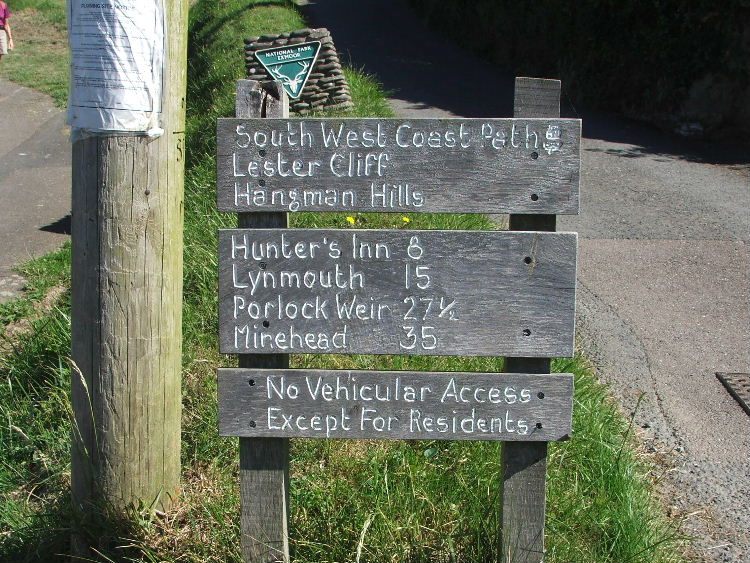 PLANNING SITE NOTICE
NATIONAL PARK
EXMOOR
South West Coast Path
Lester Cliff
Hangman Hills
Hunter's Inn 8
Lynmouth 15
Porlock Weir 27½
Minehead 35
No Vehicular Access
Except For Residents